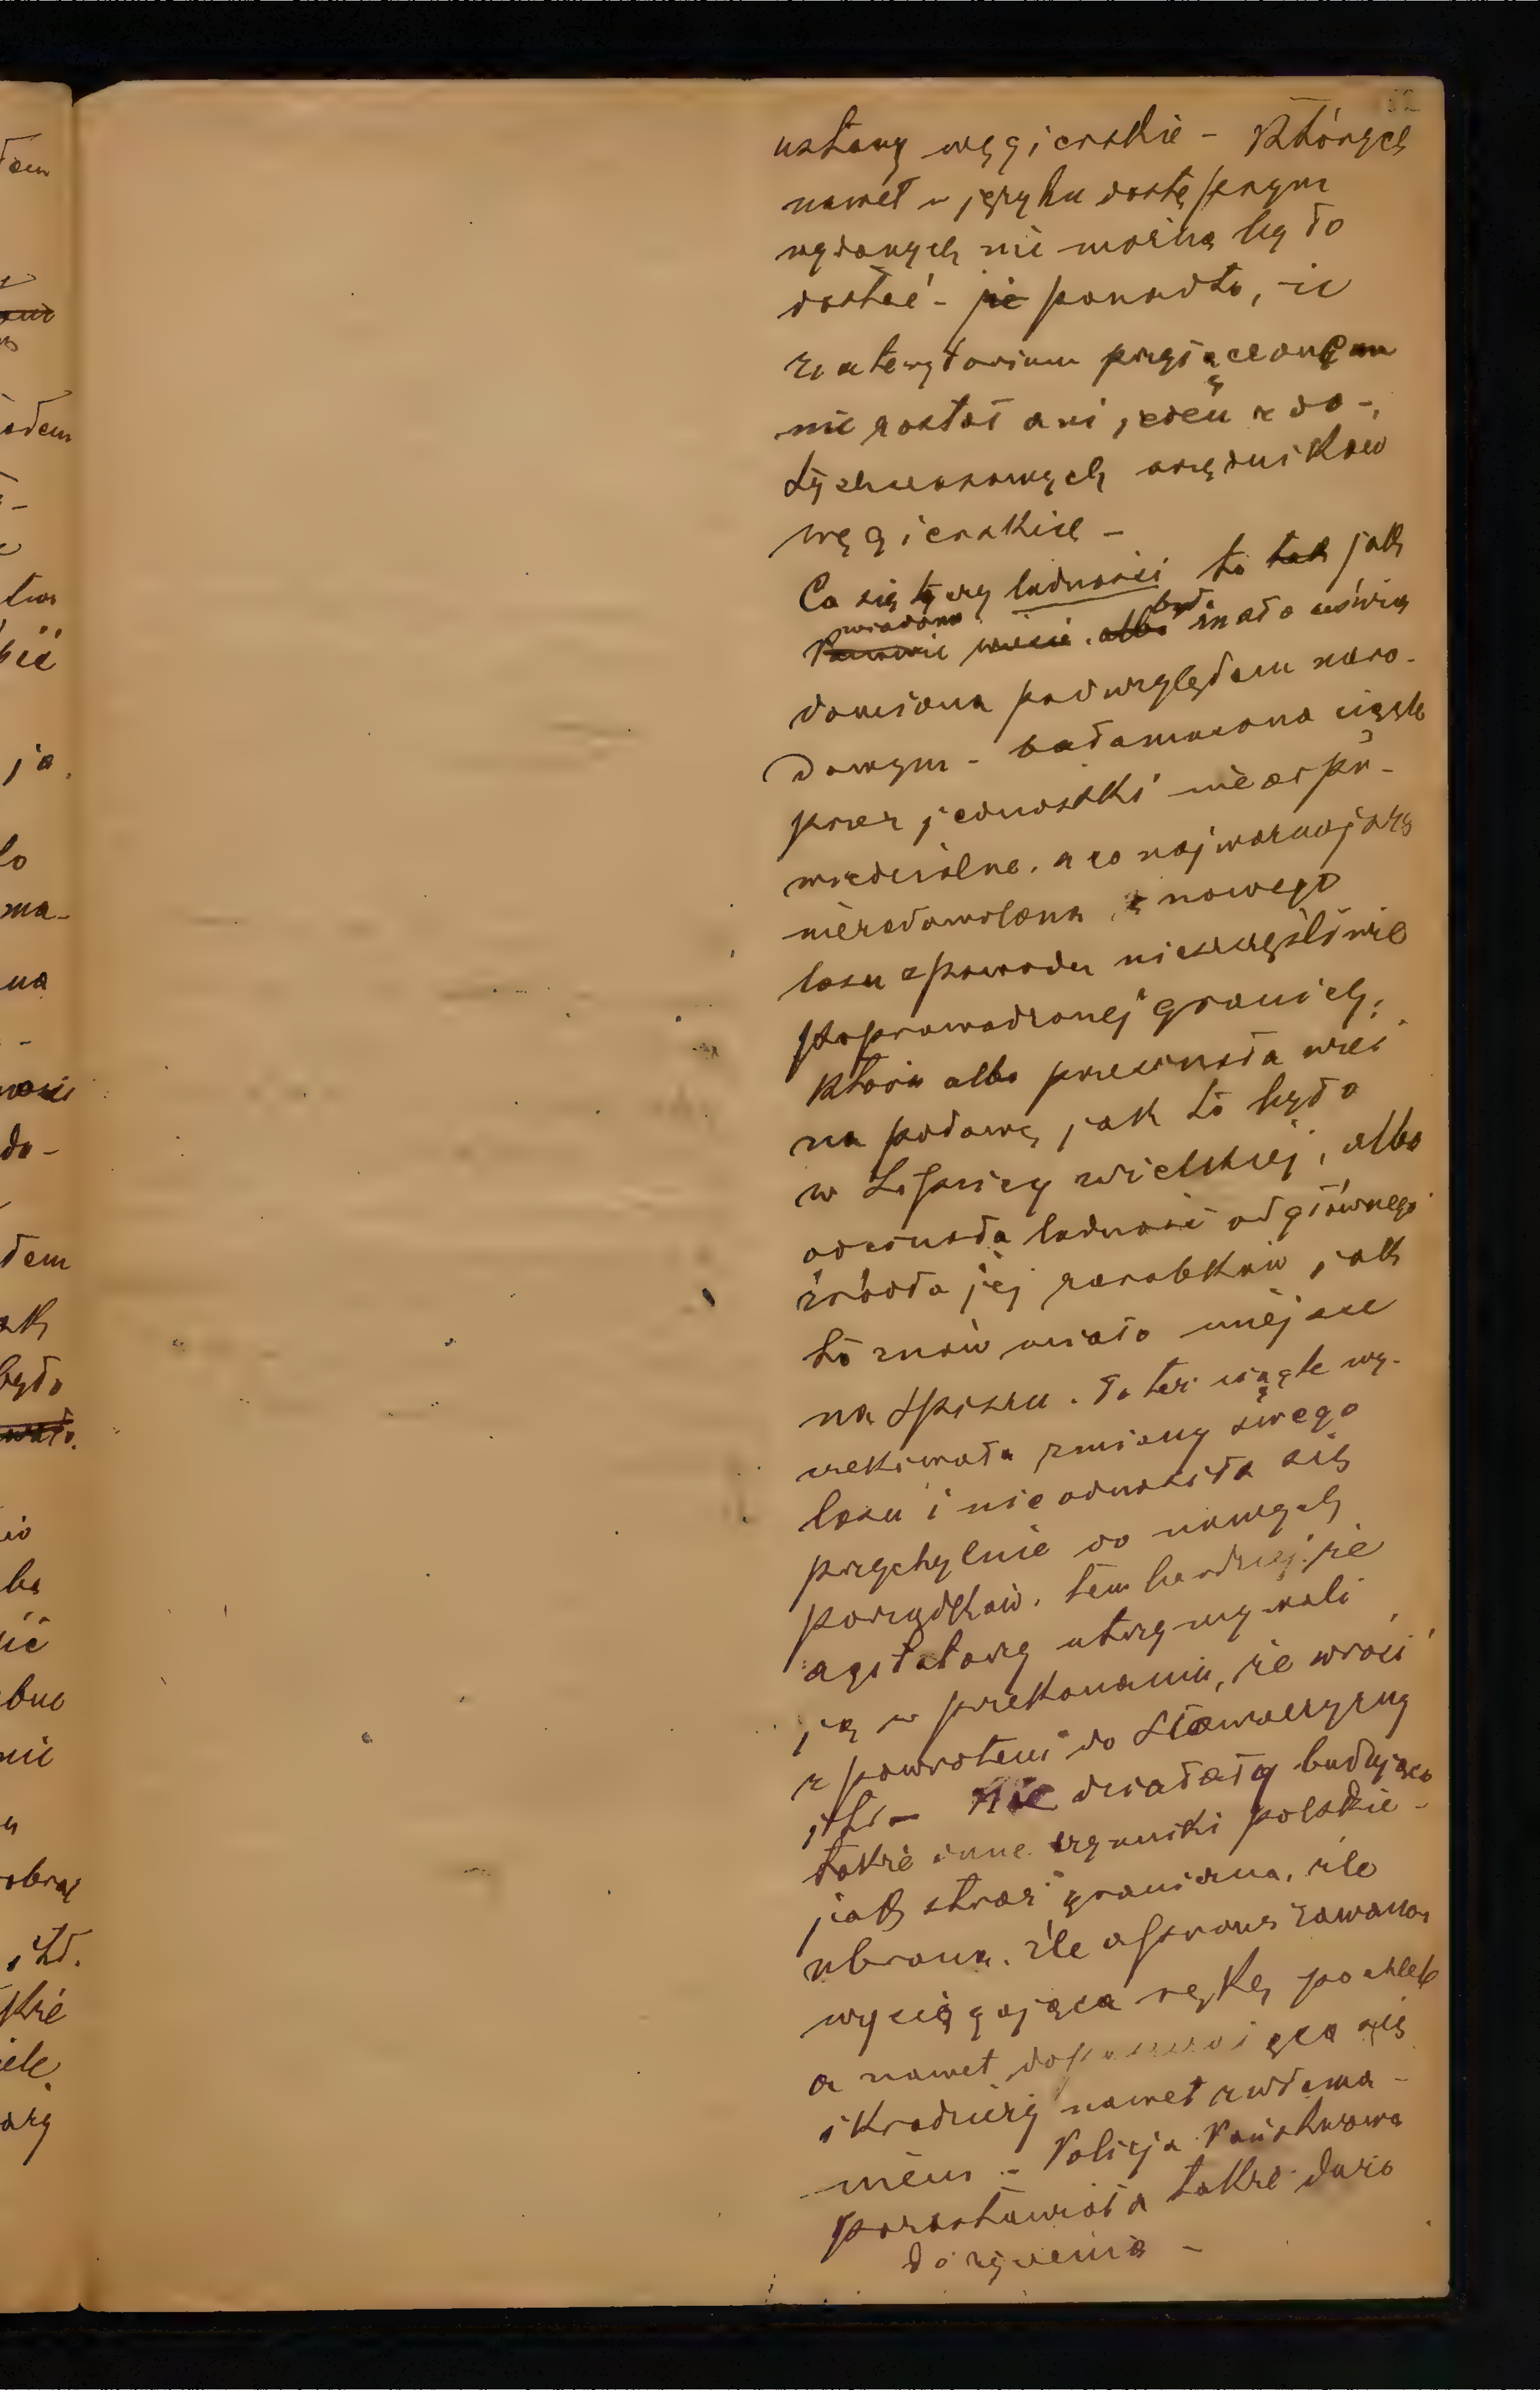 ustawy węgierskie - których
nawet w języku dostępnym
wydanych nie można było
dostać - ponadto, że
na terytorium przyłączonem
nie został ani jeden z do-
tychczasowych urzędników
węgierskich -
Co się tyczy ludności to tak jak
wiadomo była mało uświa
domiona pod względem naro-
dowym - bałamucona ciągle
przez jednostki nieodpo-
wiedzialne, a co najważniejsze
niezadowolona z nowego
losu z powodu nieszczęśliwie
poprowadzonej granicy,
która albo przecinała wieś
na połowę, jak to było
w Lipnicy wielkiej, albo
odcinała ludność od głównego
źródła jej zarobków jak
to znów miało miejsce
na Spiszu. To też ciągle wy-
czekiwała zmiany swego
losu i nie odnosiła się
przychylnie do nowych
porządków, tem bardziej że
agitatorzy utrzymywali
ją w przekonaniu, że wróci
z powrotem do Słowaczyzny
itd - Nie działały budująco
także inne czynniki polskie -
jak straż graniczna, źle
ubrana, źle
wyciągająca rękę po chleb
a nawet dopuszczająca się
i kradzieży nawet z włama-
niem - Policja Państwowa
pozostawiała także dużo
do życzenia -
dem
ja
lo
ma-
na
do-
dem
było
itd.